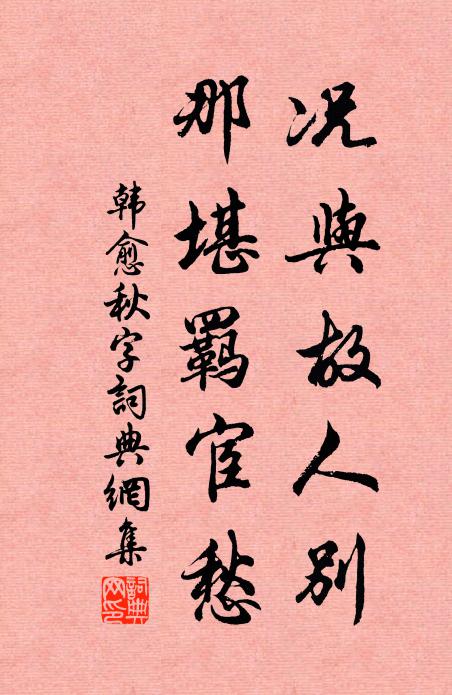 况與故人別
那堪羈宦愁
韩愈秋字詞典網集
詞典
网印